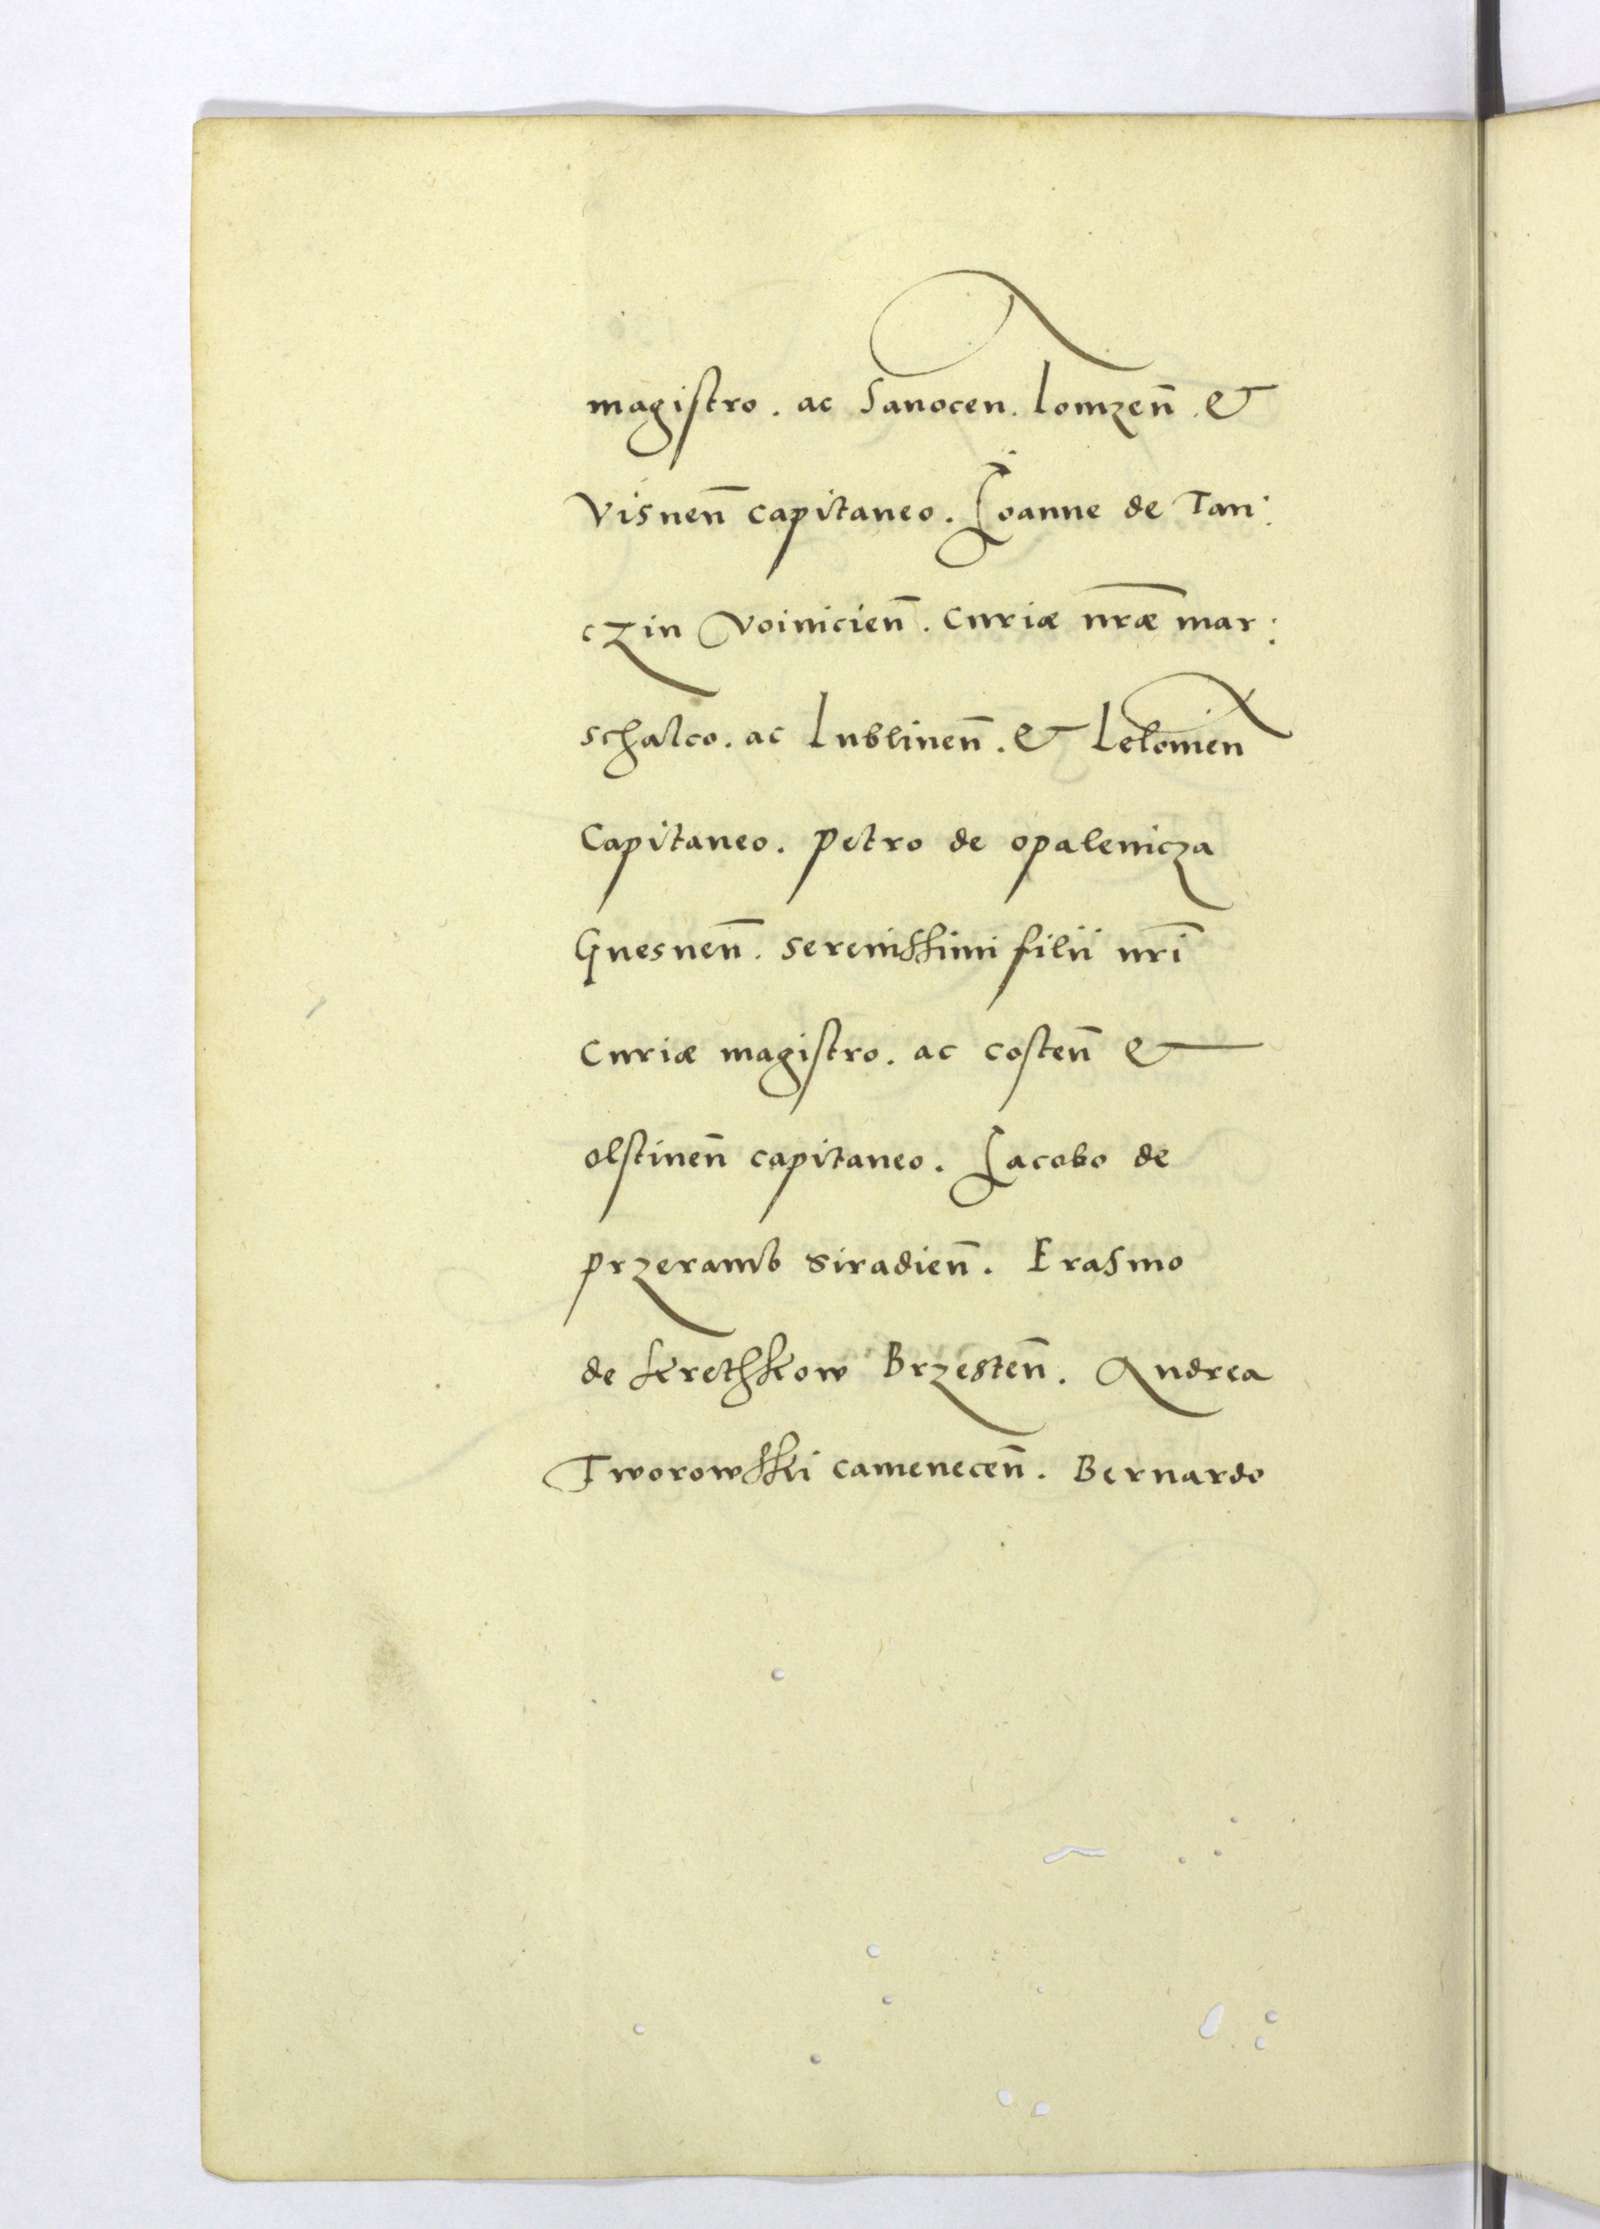 magistro. ac Sanocen. Lomzen̄. &
Visnen̄ capitaneo. Ioanne de Tan:
czin Voinicien̄. Curiæ nr̄æ mar:
schalco. ac Lublinen̄. & Lelomen
Capitaneo. Petro de opalenicza
Gnesnen̄. Serenissimi filii nr̄i
Curiæ magistro. ac costen̄ &
olstinen̄ capitaneo. Iacobo de
przeramb Siradien̄. Erasmo
de krethkow Brzesten̄. Andrea
Tworowski camenecen̄. Bernardo